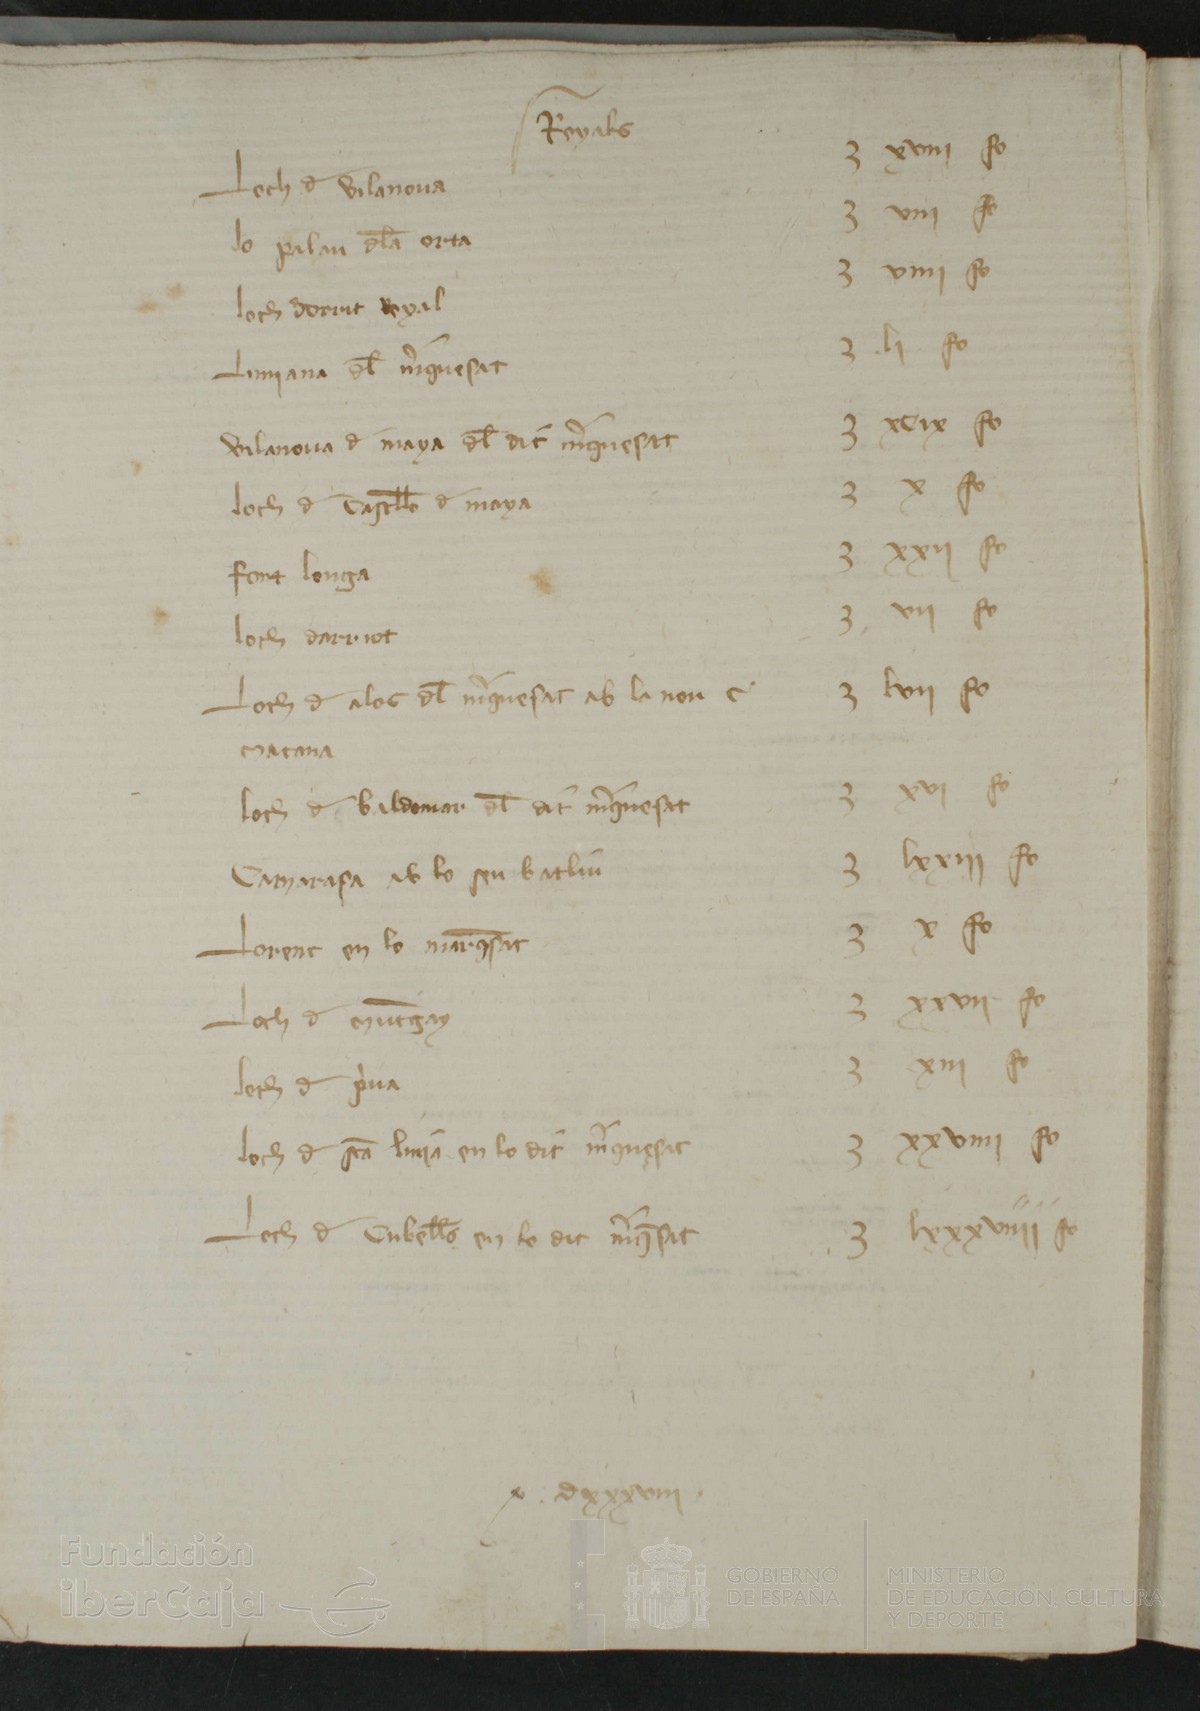 Reyals
Loch d vilanova ʒ xviii fo
lo palau dla orta ʒ viii fo
loch dorrut reyal ʒ viiii fo
Limiana dl mrquesat ʒ li fo
vilanova d maya dl dit mrquesat ʒ xCix fo
loch d Castello d maya ʒ x fo
font longa ʒ xxii fo
loch darriot ʒ vii fo
Loch d alos dl mrquesat ab la nou e ʒ lvii fo
macana
loch d baldomar dl dit mrquesat ʒ xvi fo
Camarasa ab lo seu batliu ʒ lxxiii fo
Lorenc en lo marqsat ʒ x fo
Loch d mutgay ʒ xxvii fo
loch d pua ʒ xiii fo
loch d sta linia en lo dit mrquesat ʒ xxviiii fo
Loch d Cubells en lo dit mrqsat ʒ lxxxviiii fo
x. dxxxviii.
Fundación
iberCaja
GOBIERNO
DE ESPAÑA
MINISTERIO
DE EDUCACIÓN, CULTURA
Y DEPORTE